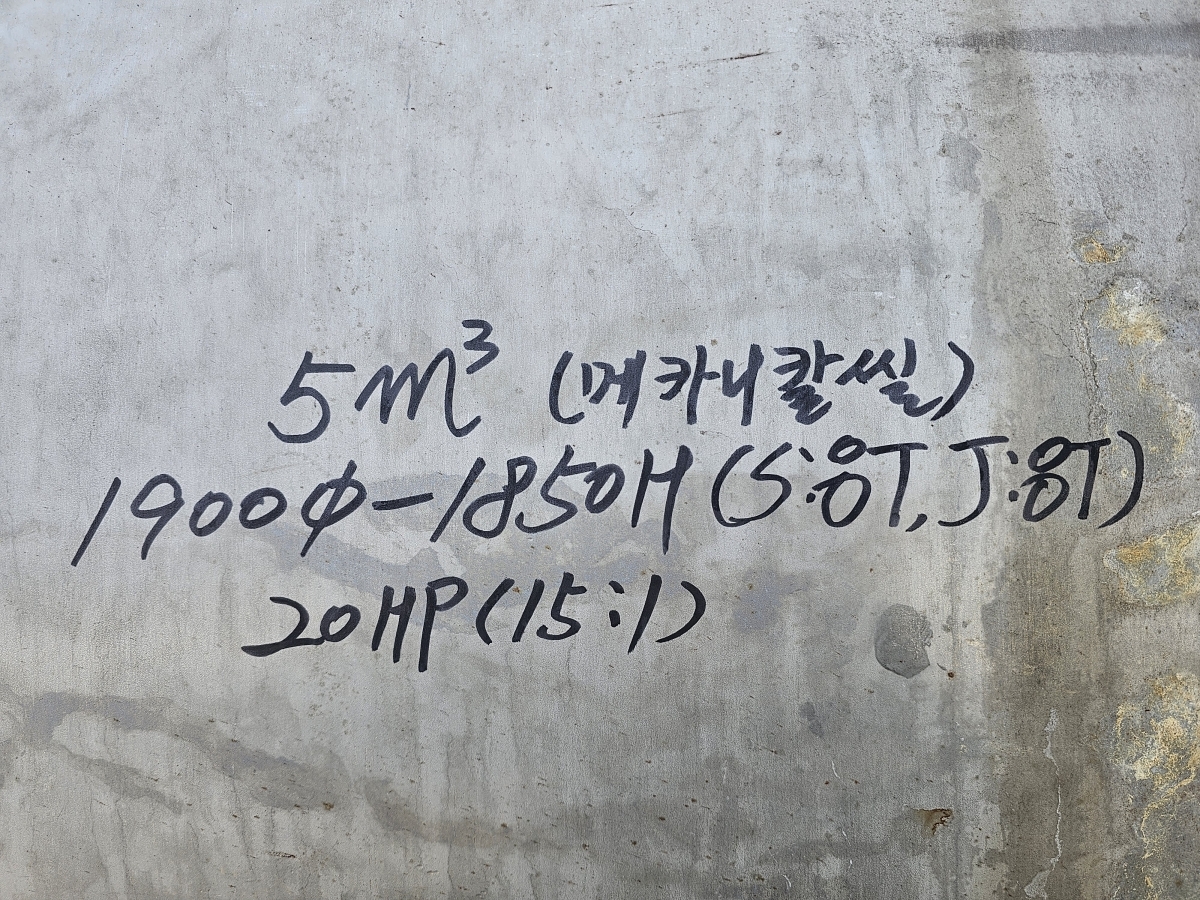 5m³ (메카니칼씰)
1900φ-1850H (S:8T, J:8T)
20HP (15:1)